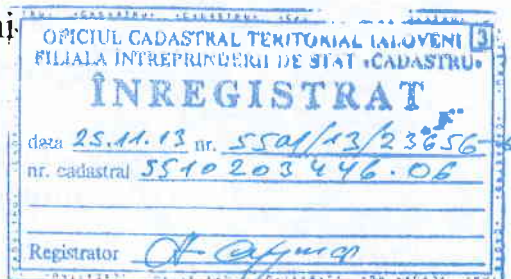 OFICIUL CADASTRAL TERITORIAL IALOVENI 3
FILIALA ÎNTREPRINDERII DE STAT «CADASTRU»
ÎNREGISTRAT
data 25.11.13 nr. 5501/13/23656
nr. cadastral 5510203446.06
Registrator